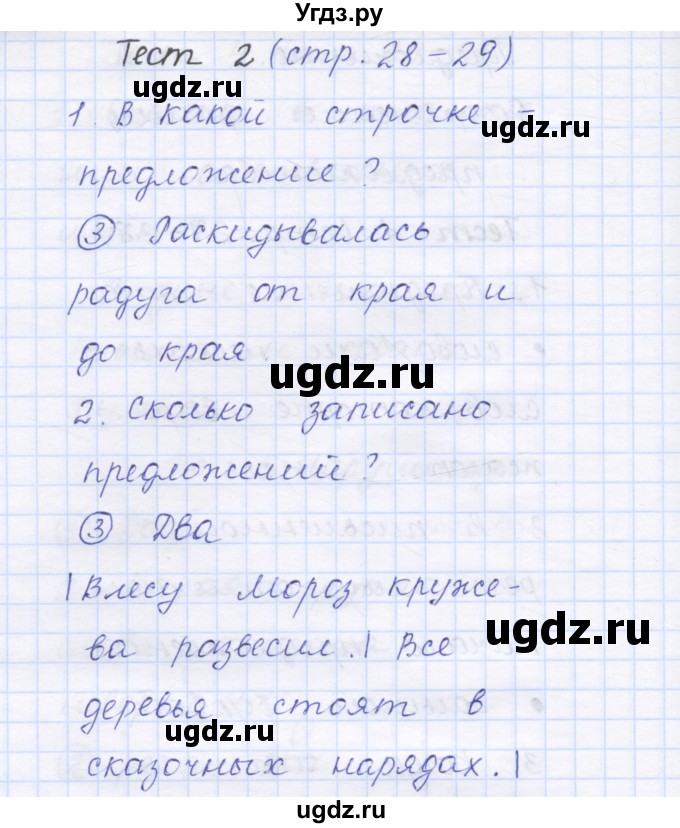 Угдз.ру
Тест 2 (стр. 28-29)
ugdz.ru
1. В какой строчке -
ugdz.ru
предложение?
ugdz.ru
③ Раскидывалась
радуга от края и
до края
ugdz.ru
2. Сколько записано
ugdz.ru
предложений?
③ Два
| В лесу Мороз круже-
ugdz.ru
ва развесил. | Все
деревья стоят в
ugdz.ru
сказочных нарядах. |
ugdz.ru